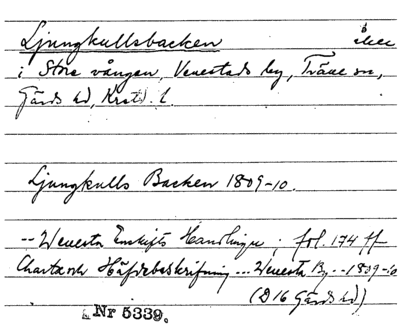 Ljungkullsbacken åker
i Stora vången, Venestads by, Träne sn,
Gärds hd, Krst. l.
Ljungkulls Backen 1809-10.
-- Wenesta Enskifts Handlingar; fol. 174 ff
Charta och Häfdebeskrifning... Wenesta By -- 1809-10
(D16 Gärds hd)
Nr 5339.